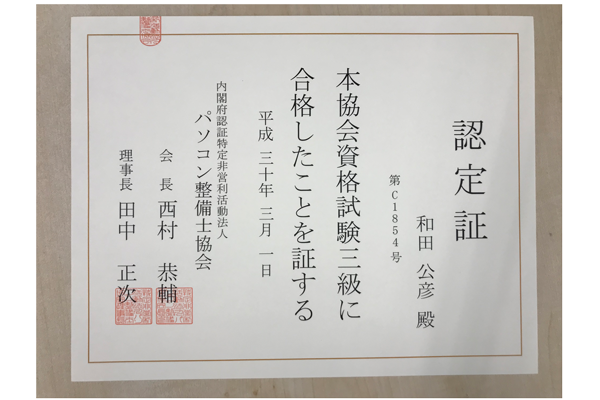 認定証
和田 公彦 殿
第C1854号
本協会資格試験三級に
合格したことを証する
平成 三十年 三月 一日
内閣府認証特定非営利活動法人
パソコン整備士協会
会 長 西村 恭輔
理事長 田中 正次